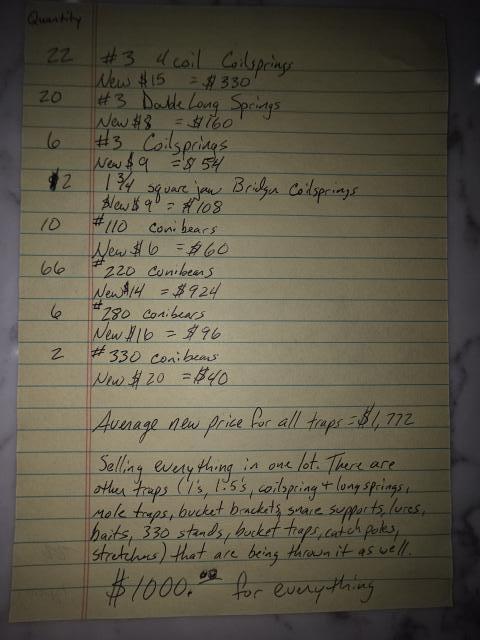 Quantity
22 #3 4 coil Coilsprings
New $15 = $330
20 #3 Double Long Springs
New $8 = $160
6 #3 Coilsprings
New $9 = $54
12 1 3/4 square jaw Bridger Coilsprings
New $9 = $108
10 #110 conibears
New $6 = $60
66 #220 conibears
New $14 = $924
6 #280 conibears
New $16 = $96
2 #330 conibears
New $20 = $40
Average new price for all traps = $1,772
Selling everything in one lot. There are
other traps (1's, 1.5's, coilspring + longsprings,
mole traps, bucket brackets, snare supports, lures,
baits, 330 stands, bucket traps, catch poles,
stretchers) that are being thrown it as well.
$1000.00 for everything